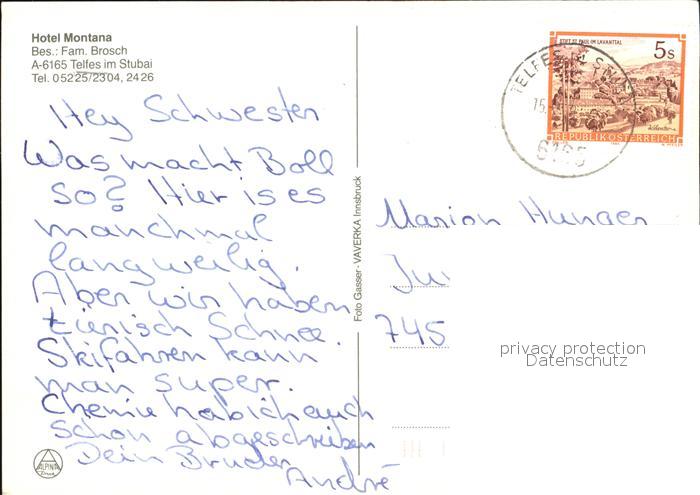 Hotel Montana
Bes.: Fam. Brosch
A-6165 Telfes im Stubai
Tel. 05225/2304, 2426
Hey Schwester
Was macht Boll
so? Hier is es
manchmal
langweilig.
Aber wir haben
tierisch Schnee.
Skifahren kann
man super.
Chemie hab ich auch
schon abgeschrieben
Dein Bruder
André
ALPINA
Foto Gasser - VAVERKA Innsbruck
STIFT ST. PAUL IM LAVANTTAL
5s
REPUBLIK ÖSTERREICH
TELFES
15.
6165
Marion Hunger
745
privacy protection
Datenschutz